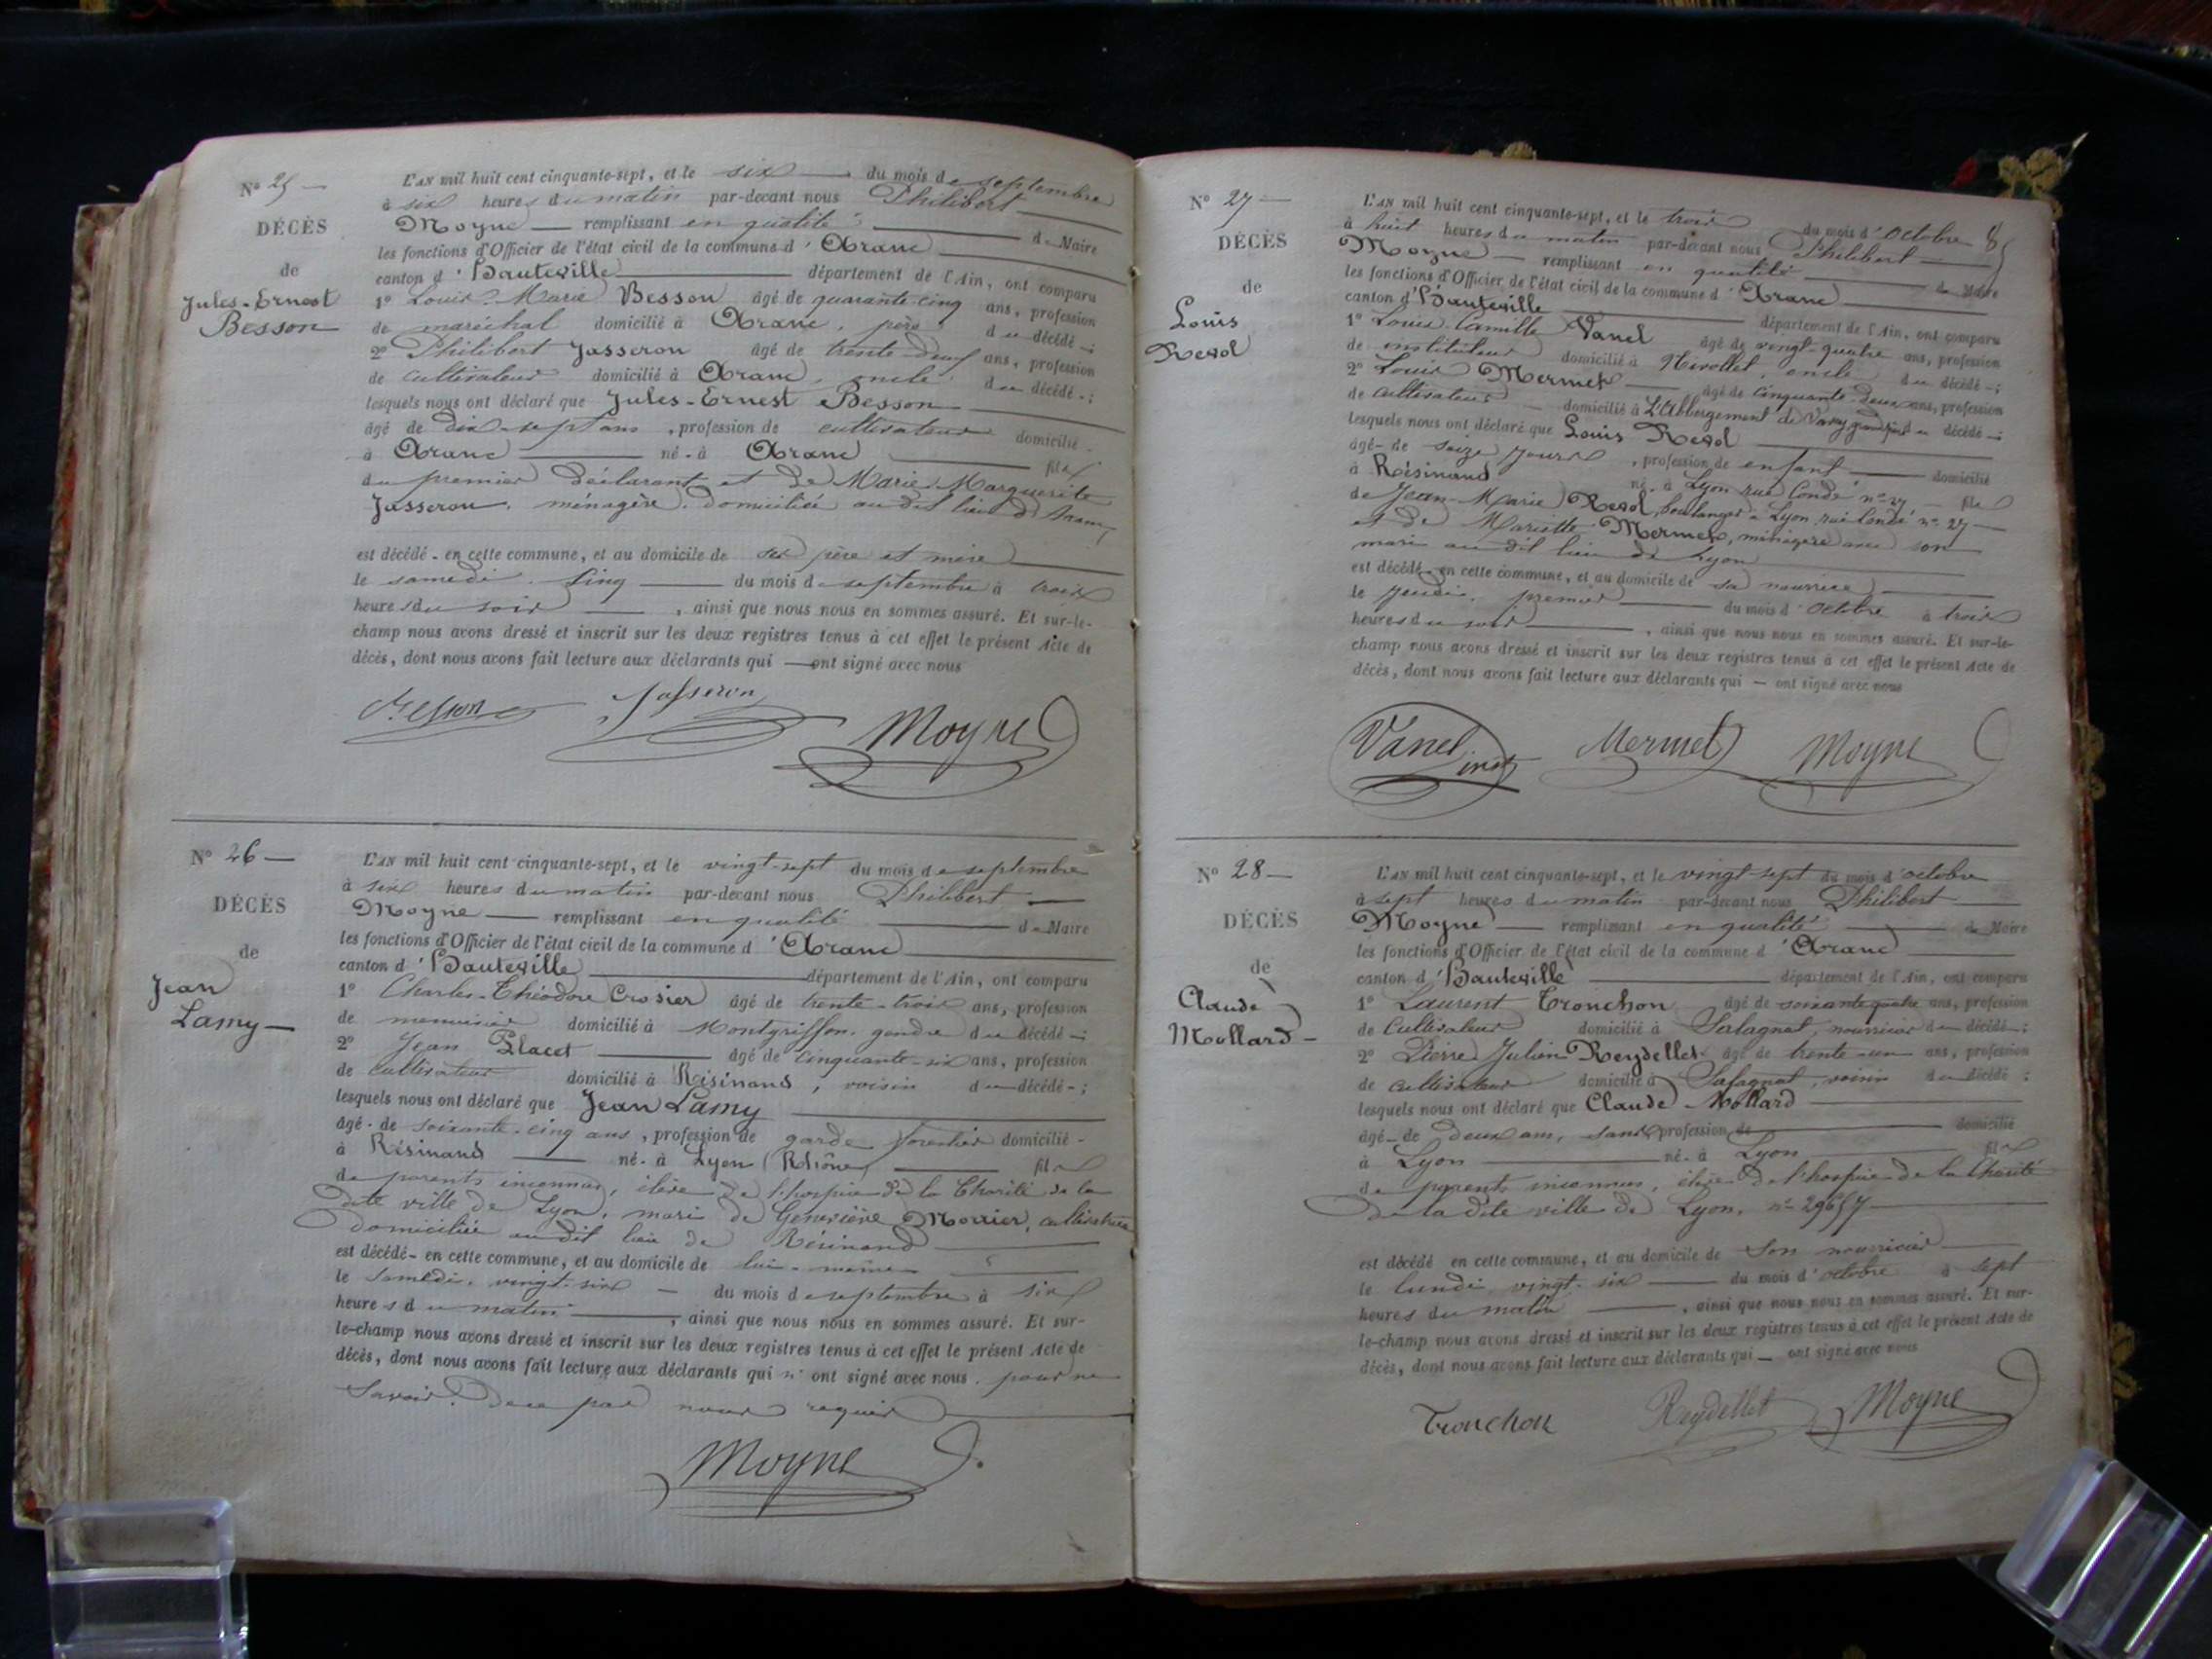 N° 25
DÉCÈS
de
Jules-Ernest
Besson
L'AN mil huit cent cinquante-sept, et le six du mois de septembre
à six heures du matin par-devant nous Philibert
Moyne remplissant en qualité de Maire
les fonctions d'Officier de l'état civil de la commune d'Aranc
canton d'Hauteville département de l'Ain, ont comparu
1° Louis-Marie Besson âgé de quarante-cinq ans, profession
de maréchal domicilié à Aranc, père du décédé;
2° Philibert Jasseron âgé de trente-neuf ans, profession
de cultivateur domicilié à Aranc, oncle du décédé;
lesquels nous ont déclaré que Jules-Ernest Besson
âgé de dix-sept ans, profession de cultivateur domicilié
à Aranc né à Aranc fils
du premier déclarant et de Marie Marguerite
Jasseron, ménagère, domiciliée au dit lieu d'Aranc,
est décédé en cette commune, et au domicile de ses père et mère
le samedi cinq du mois de septembre à trois
heures du soir, ainsi que nous nous en sommes assuré. Et sur-le-
champ nous avons dressé et inscrit sur les deux registres tenus à cet effet le présent Acte de
décès, dont nous avons fait lecture aux déclarants qui ont signé avec nous
Besson Jasseron Moyne
N° 26
DÉCÈS
de
Jean
Lamy
L'AN mil huit cent cinquante-sept, et le vingt-sept du mois de septembre
à six heures du matin par-devant nous Philibert
Moyne remplissant en qualité de Maire
les fonctions d'Officier de l'état civil de la commune d'Aranc
canton d'Hauteville département de l'Ain, ont comparu
1° Charles-Théodore Crosier âgé de trente-trois ans, profession
de menuisier domicilié à Montgriffon, gendre du décédé;
2° Jean Placet âgé de cinquante-six ans, profession
de cultivateur domicilié à Résinand, voisin du décédé;
lesquels nous ont déclaré que Jean Lamy
âgé de soixante-cinq ans, profession de garde forestier domicilié
à Résinand né à Lyon (Rhône) fils
de parents inconnus, élève de l'hospice de la Charité de la
dite ville de Lyon, mari de Geneviève Morrier, cultivatrice
domiciliée au dit lieu de Résinand
est décédé en cette commune, et au domicile de lui-même
le samedi, vingt-six du mois de septembre à six
heures du matin, ainsi que nous nous en sommes assuré. Et sur-
le-champ nous avons dressé et inscrit sur les deux registres tenus à cet effet le présent Acte de
décès, dont nous avons fait lecture aux déclarants qui n'ont signé avec nous pour ne
savoir, de ce par nous requis
Moyne
N° 27
DÉCÈS
de
Louis
Revol
L'AN mil huit cent cinquante-sept, et le trois du mois d'Octobre
à huit heures du matin par-devant nous Philibert
Moyne remplissant en qualité de Maire
les fonctions d'Officier de l'état civil de la commune d'Aranc
canton d'Hauteville département de l'Ain, ont comparu
1° Louis-Camille Vanel âgé de vingt-quatre ans, profession
de instituteur domicilié à Nivollet, oncle du décédé;
2° Louis Mermet âgé de cinquante-deux ans, profession
de cultivateur domicilié à L'Abbergement de Varey, grand père du décédé;
lesquels nous ont déclaré que Louis Revol
âgé de seize jours, profession de enfant domicilié
à Résinand né à Lyon rue Condé n° 27 fils
de Jean-Marie Revol, boulanger à Lyon, rue Condé n° 27
et de Mariette Mermet, ménagère avec son
mari au dit lieu de Lyon
est décédé en cette commune, et au domicile de sa nourrice
le jeudi, premier du mois d'octobre à trois
heures du soir, ainsi que nous nous en sommes assuré. Et sur-le-
champ nous avons dressé et inscrit sur les deux registres tenus à cet effet le présent Acte de
décès, dont nous avons fait lecture aux déclarants qui ont signé avec nous
Vanel inst Mermet Moyne
N° 28
DÉCÈS
de
Claude
Mollard
L'AN mil huit cent cinquante-sept, et le vingt sept du mois d'octobre
à sept heures du matin par-devant nous Philibert
Moyne remplissant en qualité de Maire
les fonctions d'Officier de l'état civil de la commune d'Aranc
canton d'Hauteville département de l'Ain, ont comparu
1° Laurent Tronchon âgé de soixante quatre ans, profession
de cultivateur domicilié à Salagnat, nourricier du décédé;
2° Pierre Julien Reydellet âgé de trente-un ans, profession
de cultivateur domicilié à Salagnat, voisin du décédé;
lesquels nous ont déclaré que Claude Mollard
âgé de deux ans, sans profession de domicilié
à Lyon né à Lyon fils
de parents inconnus, élève de l'hospice de la Charité
de la dite ville de Lyon, n° 29657
est décédé en cette commune, et au domicile de son nourricier
le lundi vingt-six du mois d'octobre à sept
heures du matin, ainsi que nous nous en sommes assuré. Et sur-
le-champ nous avons dressé et inscrit sur les deux registres tenus à cet effet le présent Acte de
décès, dont nous avons fait lecture aux déclarants qui ont signé avec nous
Tronchon Reydellet Moyne